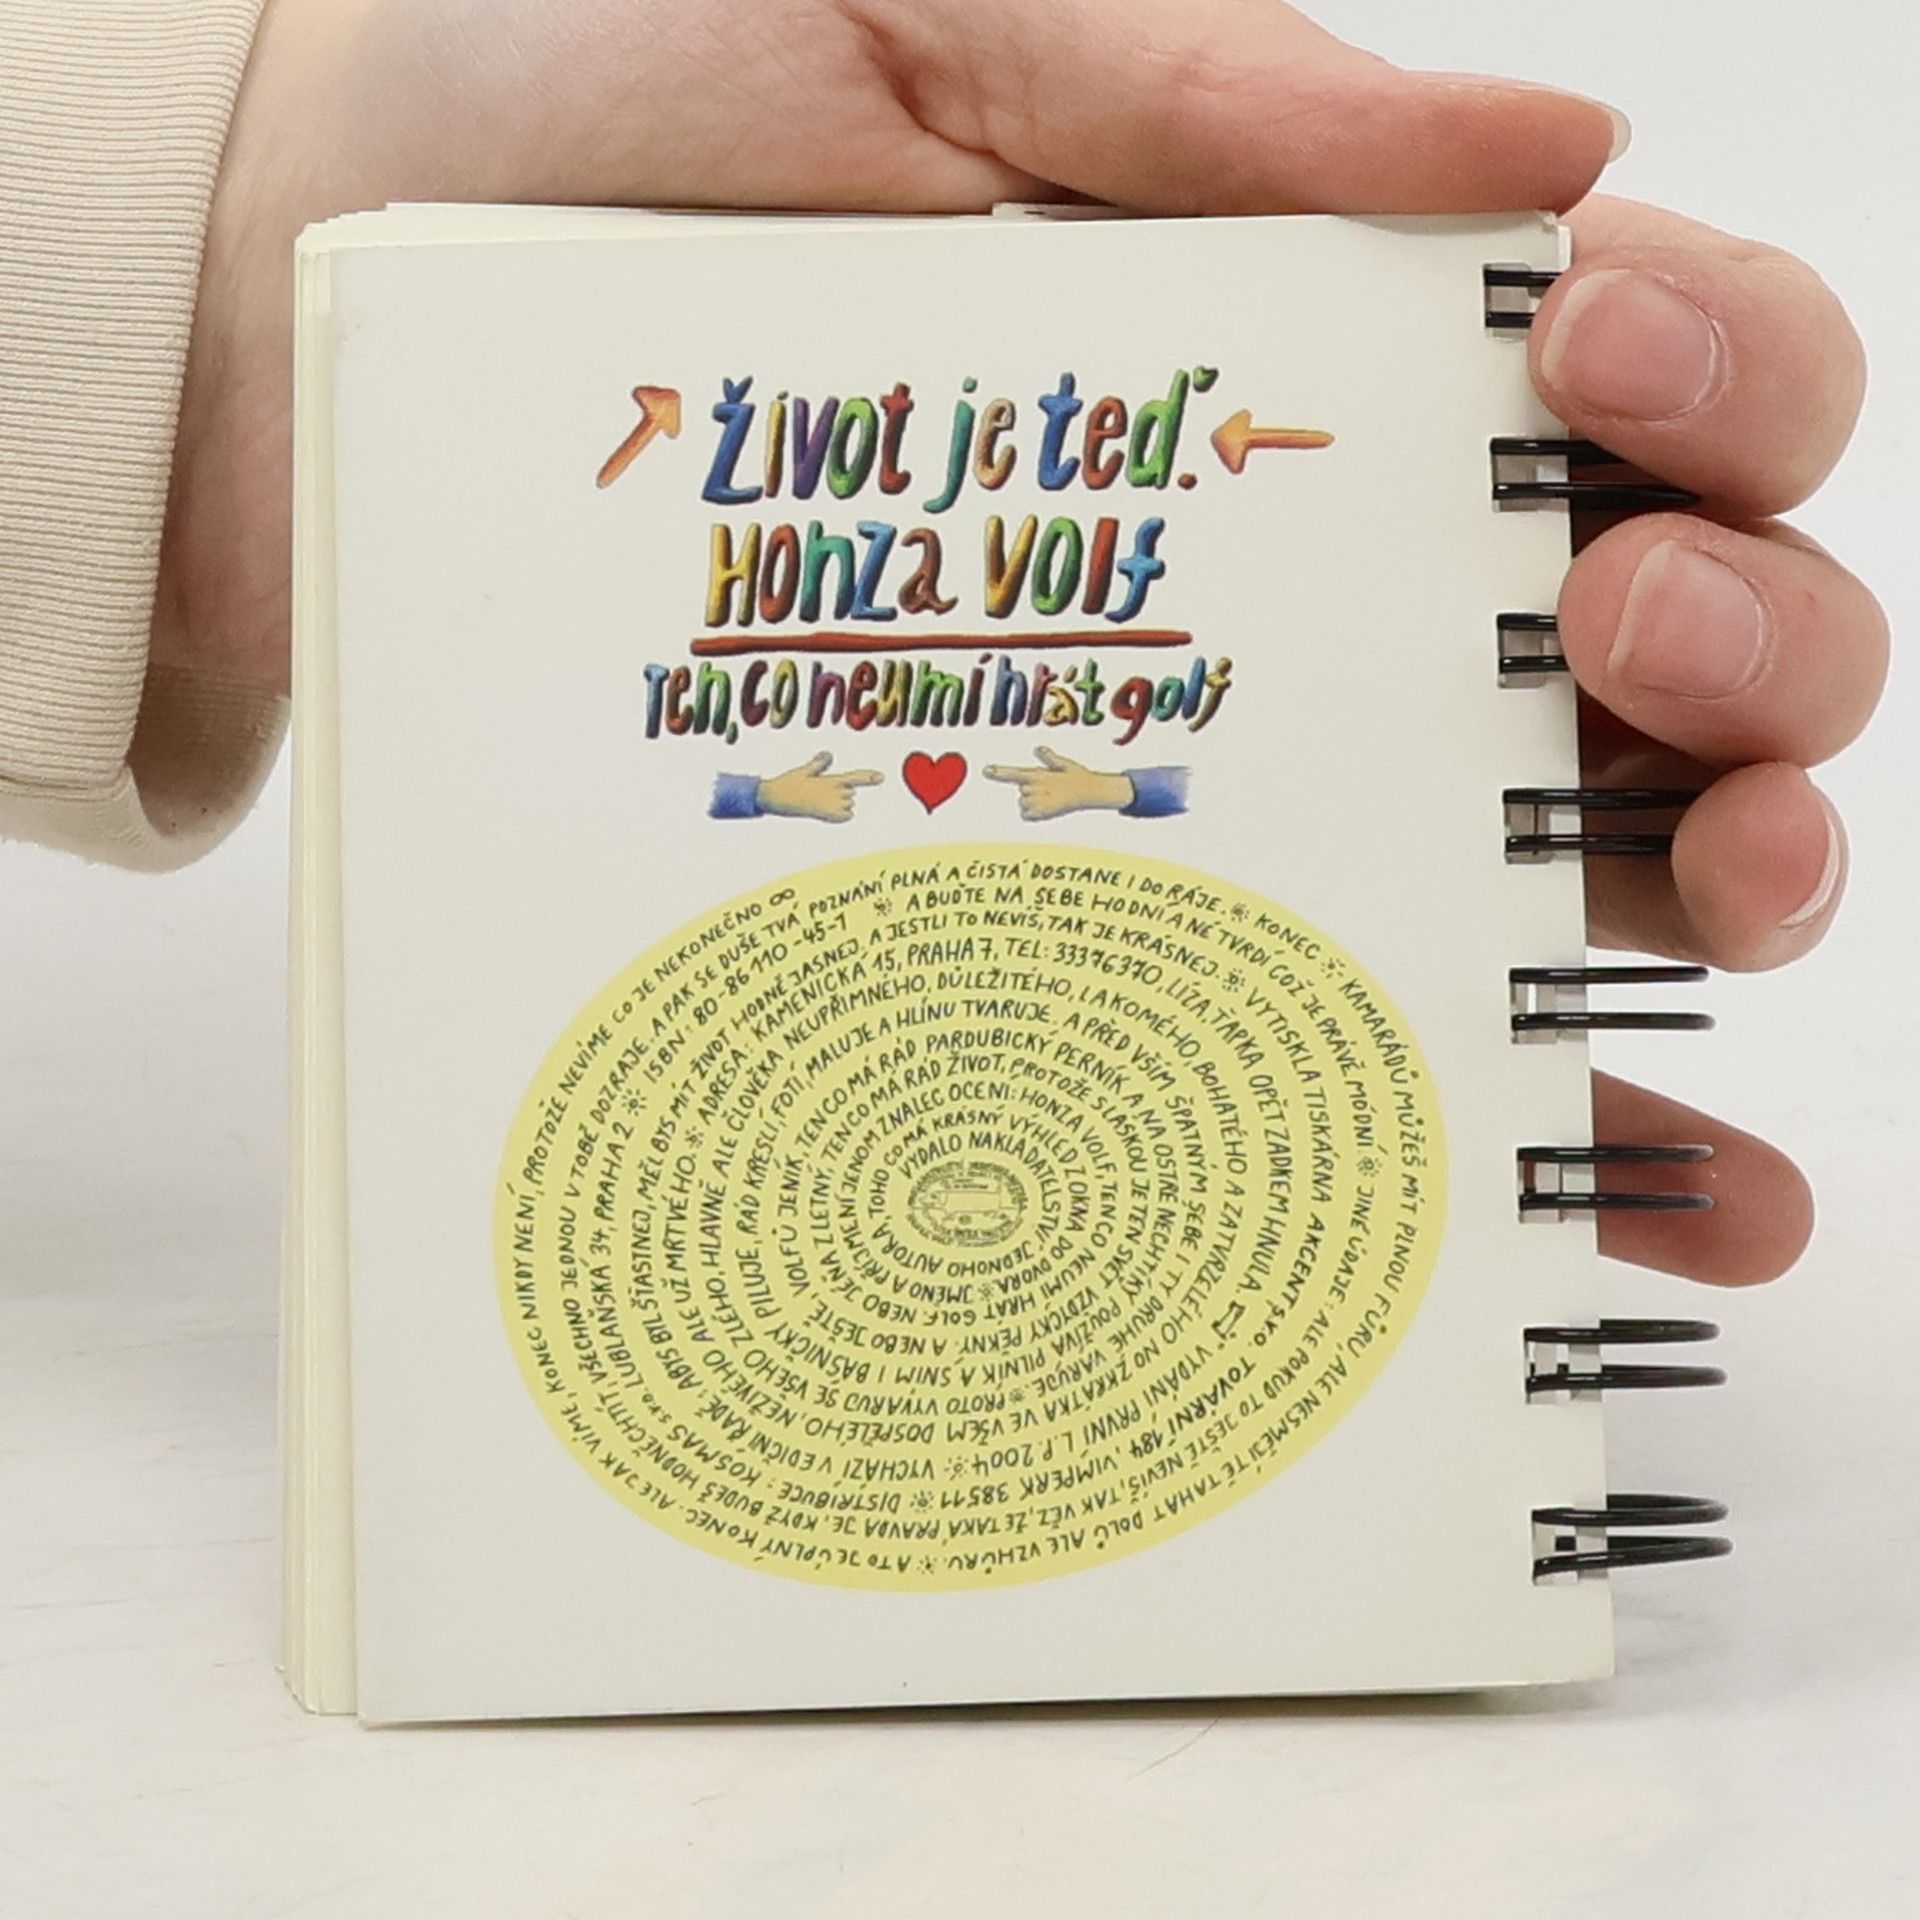 Život je teď.
Honza Volf
Ten, co neumí hrát golf
VYDALO NAKLADATELSTVÍ JEDNOHO AUTORA, TOHO CO MÁ KRÁSNÝ VÝHLED Z OKNA DO DVORA. JMÉNO A PŘÍJMENÍ JENOM ZNALEC OCENÍ: HONZA VOLF, TEN CO NEUMÍ HRÁT GOLF. NEBO JÉŇA Z LETNÝ, TEN CO MÁ RÁD ŽIVOT, PROTOŽE S LÁSKOU JE TEN SVĚT VŽDYCKY PĚKNÝ. A NEBO JEŠTĚ, VOLFŮ JENÍK, TEN CO MÁ RÁD PARDUBICKÝ PERNÍK A NA OSTRÉ NECHTÍKY POUŽÍVÁ PILNÍK A S NÍM I BÁSNIČKY PILUJE, RÁD KRESLÍ, FOTÍ, MALUJE A HLÍNU TVARUJE. A PŘED VŠÍM ŠPATNÝM SEBE I TY DRUHÉ VARUJE. PROTO VYVARUJ SE VŠEHO ZLÉHO, HLAVNĚ ALE ČLOVĚKA NEUPŘÍMNÉHO, DŮLEŽITÉHO, LAKOMÉHO, BOHATÉHO A ZATVRZELÉHO NO ZKRÁTKA VE VŠEM DOSPĚLÉHO, NEŽIVÉHO ALE UŽ MRTVÉHO. ADRESA: KAMENICKÁ 15, PRAHA 7, TEL: 33376370, LÍZA, ŤAPKA OPĚT ZADKEM HNULA. VYDÁNÍ PRVNÍ L.P. 2004 VYCHÁZÍ V EDIČNÍ ŘADĚ: ABYS BYL ŠŤASTNEJ, MĚL BYS MÍT ŽIVOT HODNĚ JASNEJ. A JESTLI TO NEVÍŠ, TAK JE KRÁSNEJ. VYTISKLA TISKÁRNA AKCENT s.r.o. TOVÁRNÍ 184, VIMPERK 38511 DISTRIBUCE: KOSMAS s.r.o. LUBLAŇSKÁ 34, PRAHA 2 ISBN: 80-86110-45-1 A BUĎTE NA SEBE HODNÍ A NE TVRDÍ COŽ JE PRÁVĚ MÓDNÍ JINÉ ÚDAJE: ALE POKUD TO JEŠTĚ NEVÍŠ, TAK VĚZ, ŽE TAKÁ PRAVDA JE, KDYŽ BUDEŠ HODNĚ CHTÍT, VŠECHNO JEDNOU V TOBĚ DOZRAJE. A PAK SE DUŠE TVÁ POZNÁNÍ PLNÁ A ČISTÁ DOSTANE I DO RÁJE. KONEC KAMARÁDŮ MŮŽEŠ MÍT PLNOU FŮRU, ALE NESMĚJÍ TĚ TAHAT DOLŮ ALE VZHŮRU. A TO JE ÚPLNÝ KONEC. ALE JAK VÍME, KONEC NIKDY NENÍ, PROTOŽE NEVÍME CO JE NEKONEČNO ∞